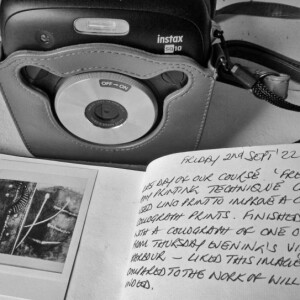 instax
SQ10
OFF ↔ ON
FRIDAY 2ND SEPT '22
DAY OF OUR COURSE 'FRE
PRINTING TECHNIQUE'
USED LINO PRINT TO IMPROVE A C
COLLOGRAPH PRINTS. FINISHED
WITH A COLLOGRAPH OF ONE O
FROM THURSDAY EVENING'S VI
HARBOUR – LIKED THIS IMAGE
COMPARED TO THE WORK OF WILL
INDEED.